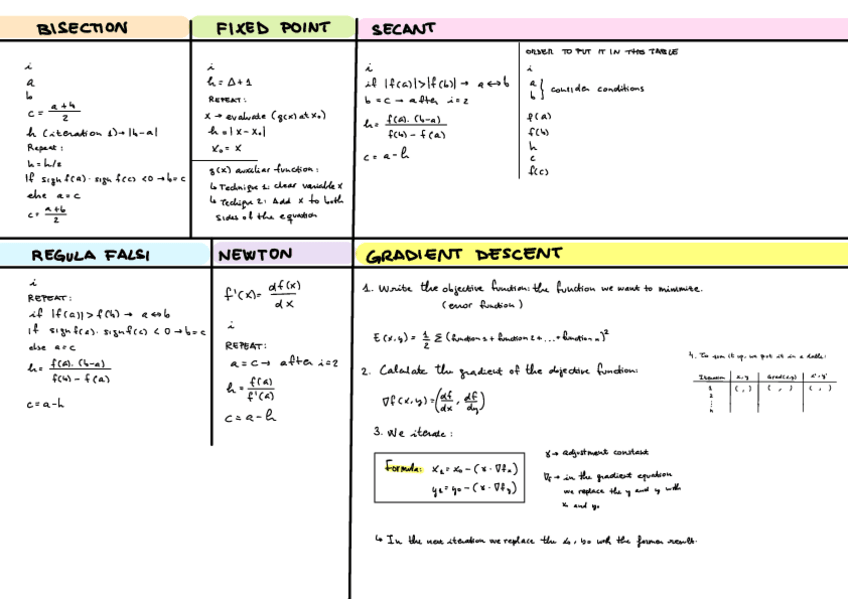 BISECTION
i
a
b
c = (a+b)/2
h (iteration 1) → |b-a|
Repeat:
h = h/2
If sign f(a) · sign f(c) < 0 → b = c
else a = c
c = (a+b)/2
FIXED POINT
i
h = Δ + 1
REPEAT:
x → evaluate (g(x) at x₀)
h = |x - x₀|
x₀ = x
g(x) auxiliar function:
↳ Technique 1: clear variable x
↳ Techique 2: Add x to both
sides of the equation
SECANT
i
if |f(a)| > |f(b)| → a ↔ b
b = c → after i = 2
h = f(a) · (b-a) / f(b) - f(a)
c = a - h
ORDER TO PUT IT IN THE TABLE
i
a
b } consider conditions
f(a)
f(b)
h
c
f(c)
REGULA FALSI
i
REPEAT:
if |f(a)| > f(b) → a ↔ b
If sign f(a) · sign f(c) < 0 → b = c
else a = c
h = f(a) · (b-a) / f(b) - f(a)
c = a - h
NEWTON
f'(x) = df(x)/dx
i
REPEAT:
a = c → after i = 2
h = f(a)/f'(a)
c = a - h
GRADIENT DESCENT
1. Write the objective function: the function we want to minimite.
(error function)
E(x,y) = 1/2 Σ (function 1 + function 2 + ... + function n)²
2. Calculate the gradient of the objective function:
∇f(x,y) = (df/dx , df/dy)
3. We iterate:
Formula: x₁ = x₀ - (γ · ∇fₓ)
y₁ = y₀ - (γ · ∇fy)
γ → adjustment constant
∇f → in the gradient equation
we replace the x and y with
x₀ and y₀
↳ In the next iteration we replace the x₀, y₀ with the former result.
4. To sum it up, we put it in a table:
Iteration x, y Grad(x,y) x', y'
1 ( , ) ( , ) ( , )
2
:
n